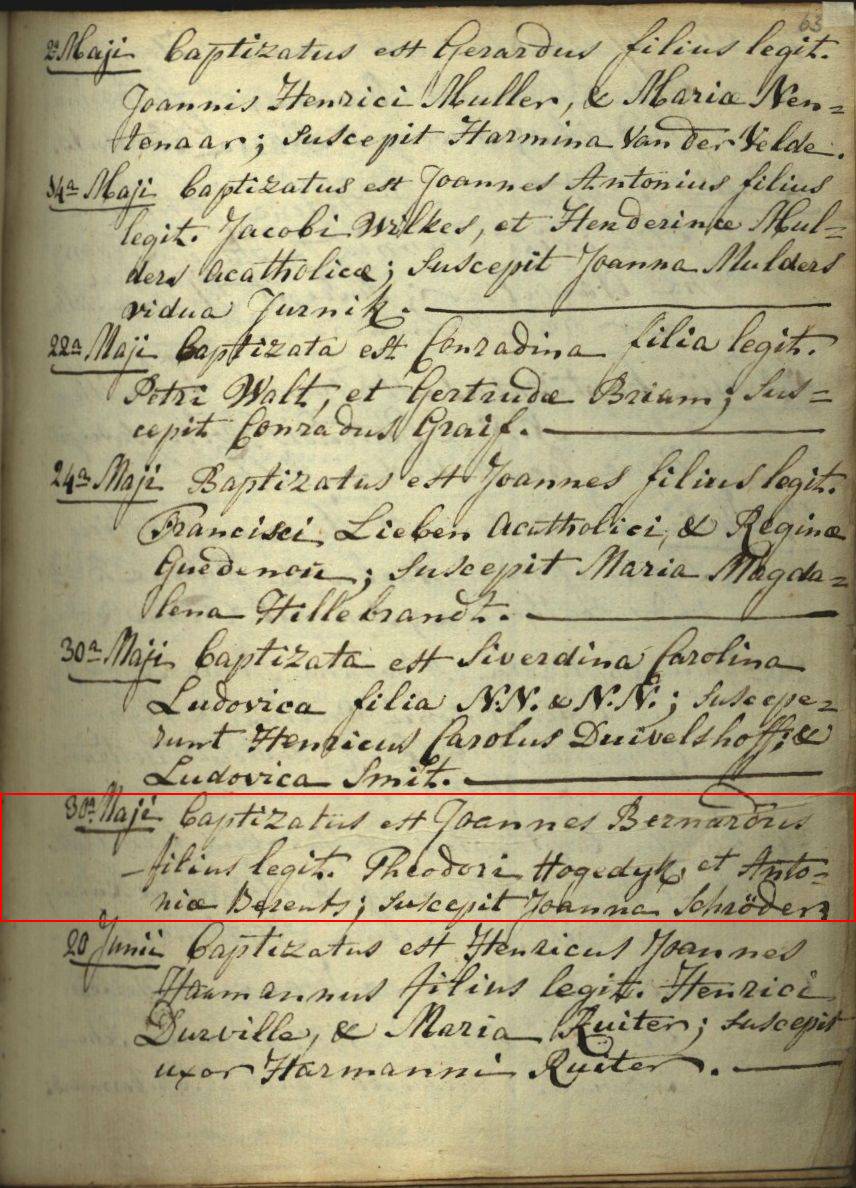 63
2a Maji Baptizatus est Gerardus filius legit.
Joannis Henrici Muller, & Maria Nen=
tenaar; suscepit Harmina Van der Velde.
14a Maji Baptizatus est Joannes Antonius filius
legit. Jacobi Wilkes, et Henderinæ Mul=
ders acatholicæ; suscepit Joanna Mulders
vidua Jurnik.
22a Maji Baptizata est Conradina filia legit.
Petri Walt, et Gertrudæ Briam; sus=
cepit Conradus Graif.
24a Maji Baptizatus est Joannes filius legit.
Francisci Lieben acatholici, & Reginæ
Guedenou; suscepit Maria Magda=
lena Hillebrandt.
30a Maji Baptizata est Siverdina Carolina
Ludovica filia N.N. & N.N.; suscepe=
runt Henricus Carolus Duivelshoff, &
Ludovica Smit.
30a Maji Baptizatus est Joannes Bernardus
filius legit. Theodori Hogedyk, et Anto=
niæ Berents; suscepit Joanna Schröder,
20 Junii Baptizatus est Henricus Joannes
Harmannus filius legit. Henrici
Durville, & Maria Ruiter; suscepit
uxor Harmanni Ruiter.